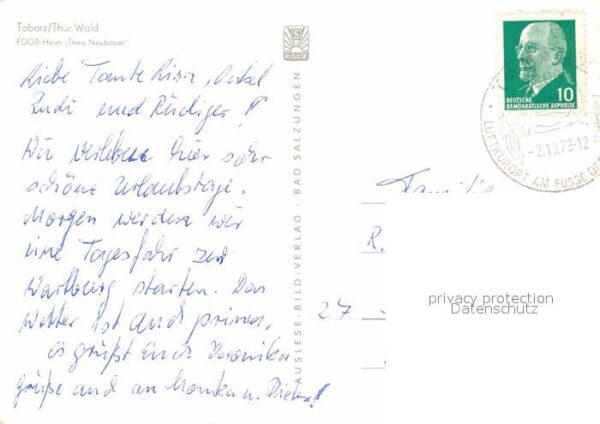 Tabarz/Thür. Wald
FDGB-Heim „Theo Neubauer"
AUSLESE
Liebe Tante Lisa, Onkel
Rudi und Rüdiger!
Wir verleben hier sehr
schöne Urlaubstage.
Morgen werden wir
eine Tagesfahr zur
Wartburg starten. Das
Wetter ist auch prima.
Es grüßt Euch Veronika
Grüße auch an Monika u. Dieter!
AUSLESE-BILD-VERLAG · BAD SALZUNGEN
10
DEUTSCHE
DEMOKRATISCHE REPUBLIK
-2.10.73-12
LUFTKURORT AM FUSSE DE
Familie
R.
27
privacy protection
Datenschutz